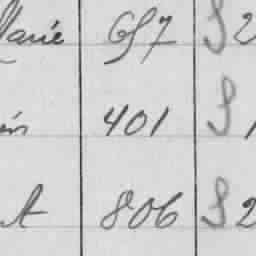 Marie 657 S 2
401 S 1
A 806 S 2